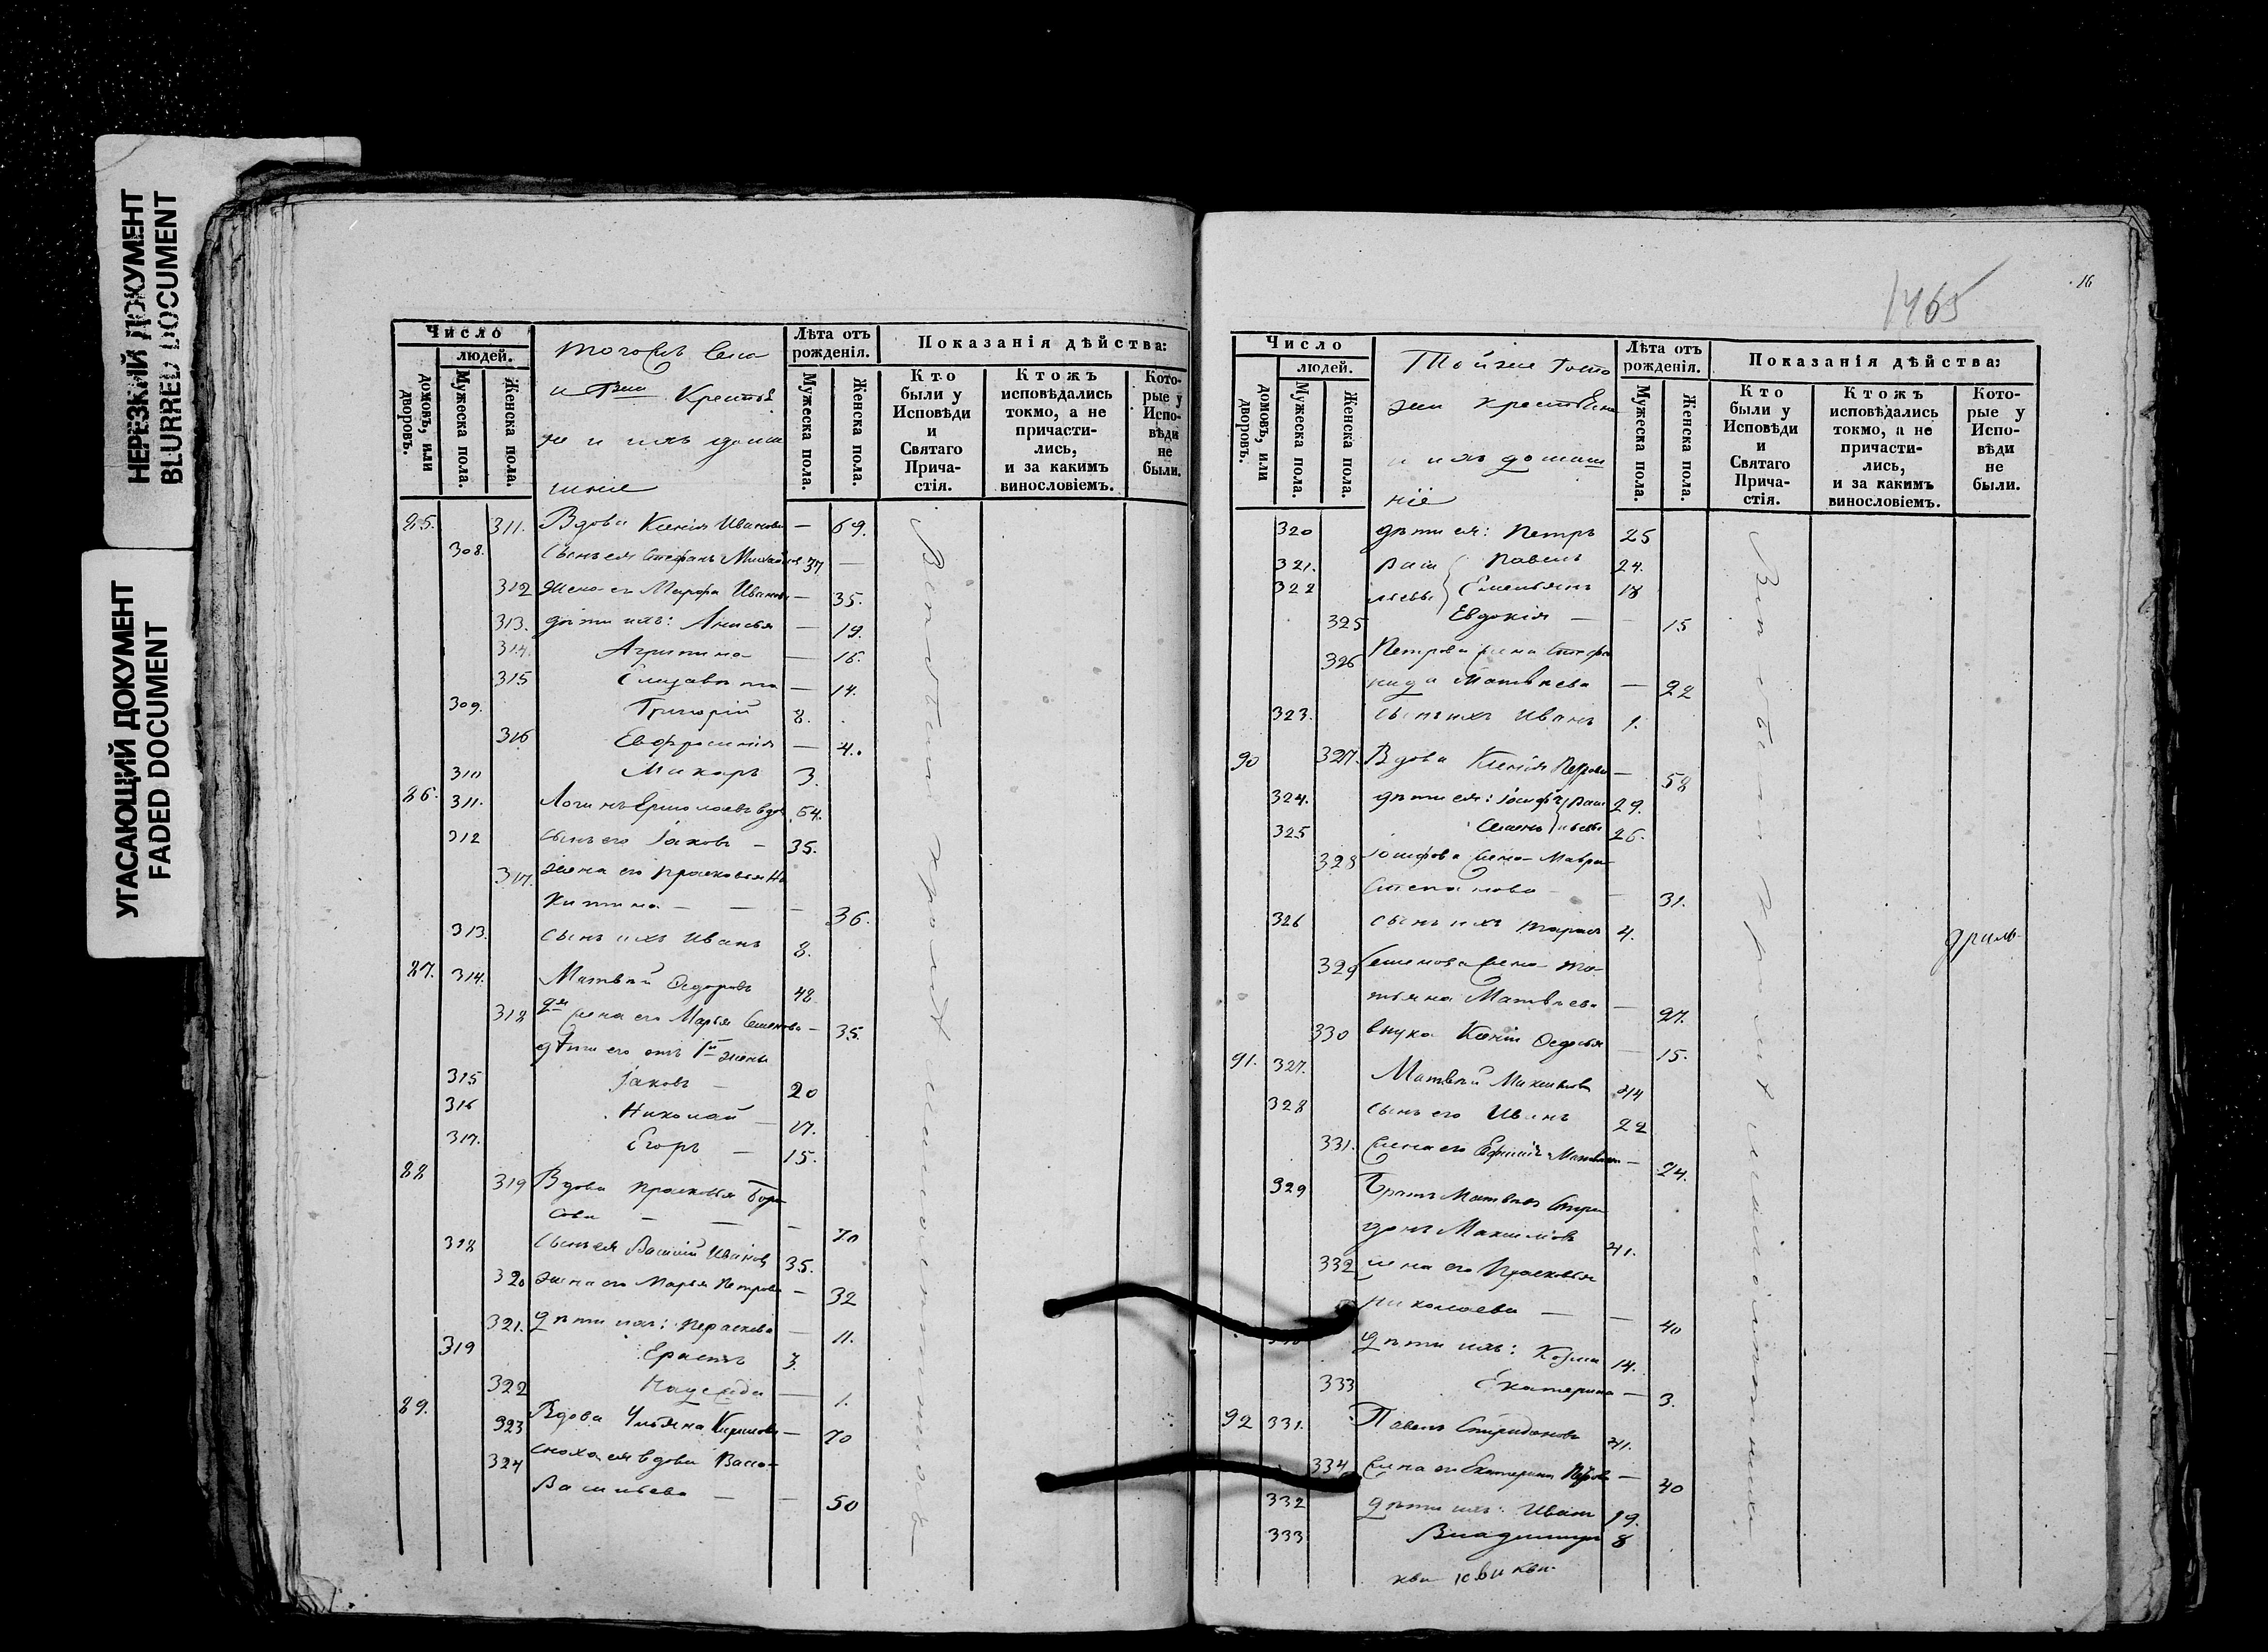 НЕРЕЗКИЙ ДОКУМЕНТ
BLURRED DOCUMENT
УГАСАЮЩИЙ ДОКУМЕНТ
FADED DOCUMENT
Число
людей.
домовъ, или дворовъ.
Мужеска пола.
Женска пола.
Лѣта отъ рожденія.
Мужеска пола.
Женска пола.
Показанія дѣйства:
Кто были у Исповѣди и Святаго Прича-стія.
Ктожъ исповѣдались токмо, а не причасти-лись, и за какимъ винословіемъ.
Кото-рые у Испо-вѣди не были.
85. 311. Вдова Ксенія Иванова — 69.
308. Сынъ ея Стефанъ Михайловъ 37 —
312 жена его Марфа Иванова — 35.
313. дѣти ихъ: Анисья — 19.
314. Агрипина — 16.
315 Елизавета — 14.
309. Григорій 8.
316 Евфросинія — 4.
310 Макаръ 3.
86. 311. Логинъ Ермолаевъ вдов 64.
312 сынъ его Іаковъ — 35.
317. жена его Прасковья Ни
китина — — — 36.
313. сынъ ихъ Иванъ 8.
87. 314. Матвѣй Ѳедоровъ 48
318 2я жена его Марья Семенова — 35.
дѣти его отъ 1й жены
315 Іаковъ — 20
316 Николай — 17.
317. Егоръ — 15.
88 319 Вдова Прасковья Бори
сова — — — 70
318 Сынъ ея Василій Ивановъ 35.
320 жена его Марья Петрова — 32
321. дѣти ихъ: Параскева — 11.
319 Ерастъ 3.
322 Надежда — 1.
89. 323 Вдова Ульяна Кирилова — 70
324 сноха ея вдова Васса
Васильева — — 50
1465
16
Число
людей.
домовъ, или дворовъ.
Мужеска пола.
Женска пола.
Тойже
и ихъ домаш
ніе
Лѣта отъ рожденія.
Мужеска пола.
Женска пола.
Показанія дѣйства:
Кто были у Исповѣди и Святаго Прича-стія.
Ктожъ исповѣдались токмо, а не причасти-лись, и за какимъ винословіемъ.
Кото-рые у Испо-вѣди не были.
320 дѣти ея: Петръ 25
321. Васи Павелъ 24.
322 льевы Емельянъ 18
325 Евдокія — — 15
326 Петрова жена Стефа
нида Матвѣева — 22
323. сынъ ихъ Иванъ 1.
90 327. Вдова Ксенія Петрова — 58
324. дѣти ея: Іосифъ Васи 29.
325 Семенъ льевы 26.
328 Іосифова жена Мавра
Степанова — — 31.
326 сынъ ихъ Тарасъ 4.
329 Семенова жена Та
тьяна Матвѣева — 27.
330 внука Ксеніи Ѳедосья — 15.
91. 327. Матвѣй Максимовъ 44
328 сынъ его Иванъ 22
331. жена его Матвѣева — 24.
329 Братъ Матвѣевъ Спири
донъ Максимовъ 41.
332 жена его Прасковья
Николаева — — 40
дѣти ихъ: Козма 14.
333 Екатерина — 3.
92 331. Павелъ Спиридоновъ 41.
334 жена его Екатерина Петрова — 40
332 дѣти ихъ: Иванъ 19.
333 Владимиръ 8